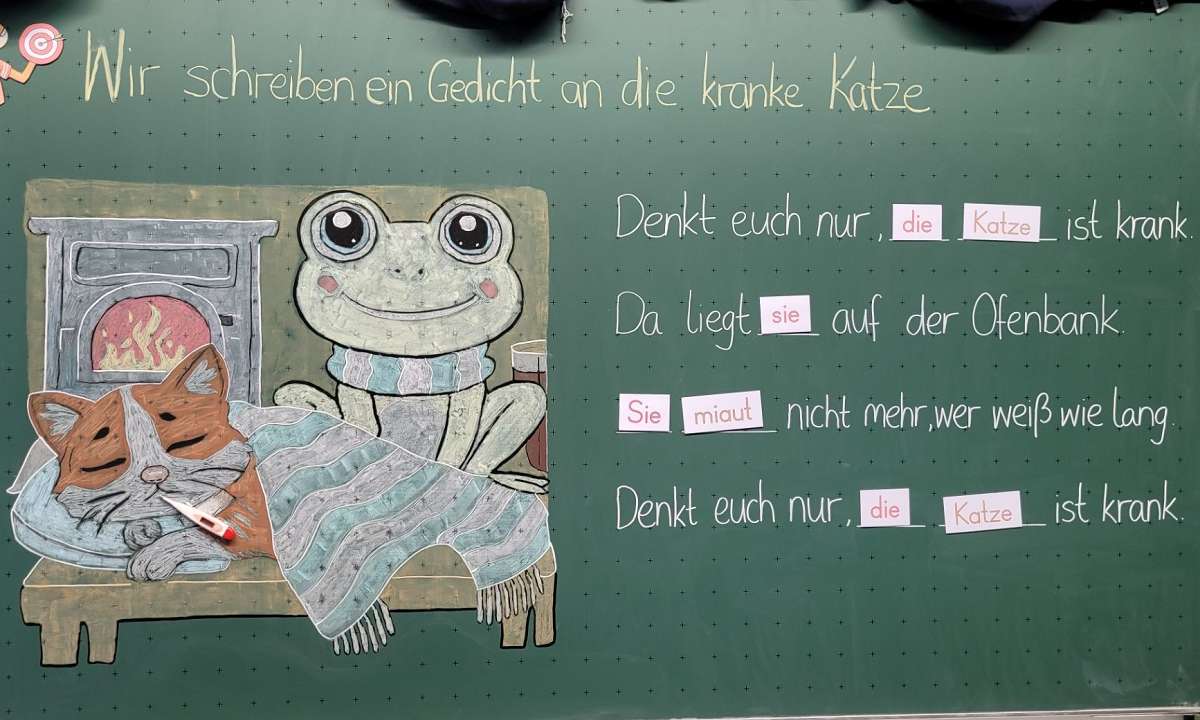 Wir schreiben ein Gedicht an die kranke Katze
Denkt euch nur, die Katze ist krank.
Da liegt sie auf der Ofenbank.
Sie miaut nicht mehr, wer weiß wie lang.
Denkt euch nur, die Katze ist krank.